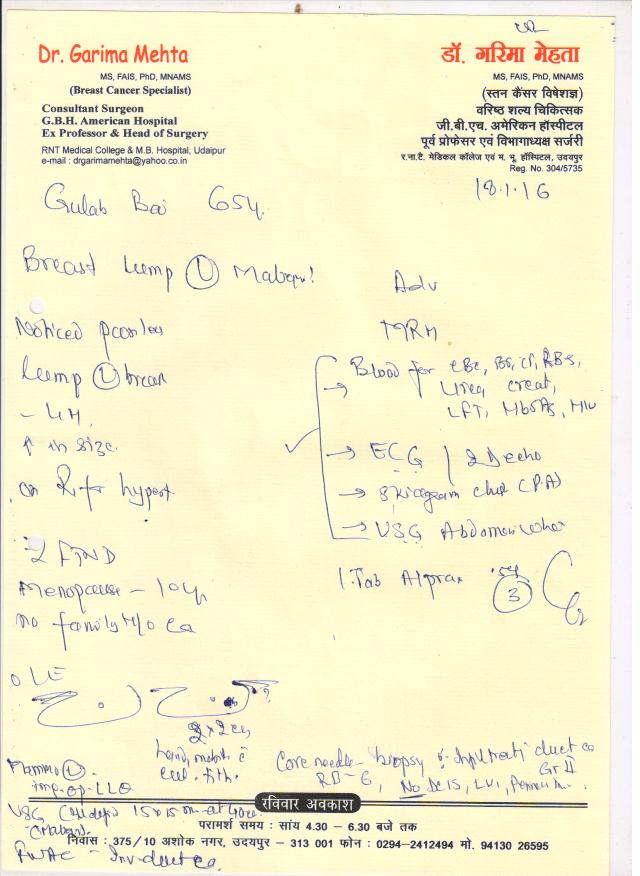 Dr. Garima Mehta
MS, FAIS, PhD, MNAMS
(Breast Cancer Specialist)
Consultant Surgeon
G.B.H. American Hospital
Ex Professor & Head of Surgery
RNT Medical College & M.B. Hospital, Udaipur
e-mail : drgarimamehta@yahoo.co.in
डॉ. गरिमा मेहता
MS, FAIS, PhD, MNAMS
(स्तन कैंसर विषेशज्ञ)
वरिष्ठ शल्य चिकित्सक
जी.बी.एच. अमेरिकन हॉस्पीटल
पूर्व प्रोफेसर एवं विभागाध्यक्ष सर्जरी
र.ना.टै. मेडिकल कॉलेज एवं म. भू. हॉस्पिटल, उदयपुर
Reg. No. 304/5735
18.1.16
Gulab Bai 65y.
Breast lump Ⓛ
Noticed painless
lump Ⓛ breast
- 4M.
↑ in size.
on R for hypert
2 FTND
Menopause - 10y
no family H/o ca
O/E
2x2cm
hard, mobile c̄
Mammo Ⓛ
USG 15x15mm at
FNAC - Inv duct ca
Adv
MRM
→ Blood for CBC, BT, CT, RBS,
Urea, creat,
LFT, HbsAg, HIV
→ ECG / 2D echo
→ Skiagram chest (PA)
→ USG Abdomen whole
1. Tab Alprax .5
③
Core needle biopsy : Infiltrating duct ca
Gr II
RB-6, No DCIS, LVI,
रविवार अवकाश
परामर्श समय : सांय 4.30 – 6.30 बजे तक
निवास : 375/10 अशोक नगर, उदयपुर – 313 001 फोन : 0294-2412494 मो. 94130 26595